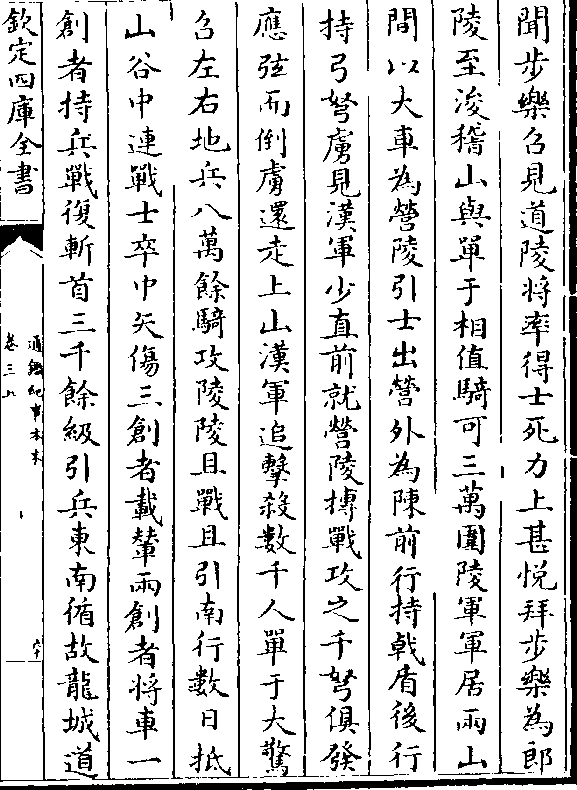 聞步樂召見道陵將率得士死力上甚悅拜步樂為郎
陵至浚稽山與單于相值騎可三萬圍陵軍軍居兩山
間以大車為營陵引士出營外為陳前行持戟盾後行
持弓弩虜見漢軍少直前就營陵搏戰攻之千弩俱發
應弦而倒虜還走上山漢軍追擊殺數千人單于大驚
召左右地兵八萬餘騎攻陵陵且戰且引南行數日抵
山谷中連戰士卒中矢傷三創者載輦兩創者將車一
創者持兵戰復斬首三千餘級引兵東南循故龍城道
欽定四庫全書
通鑑紀事本末
卷三上